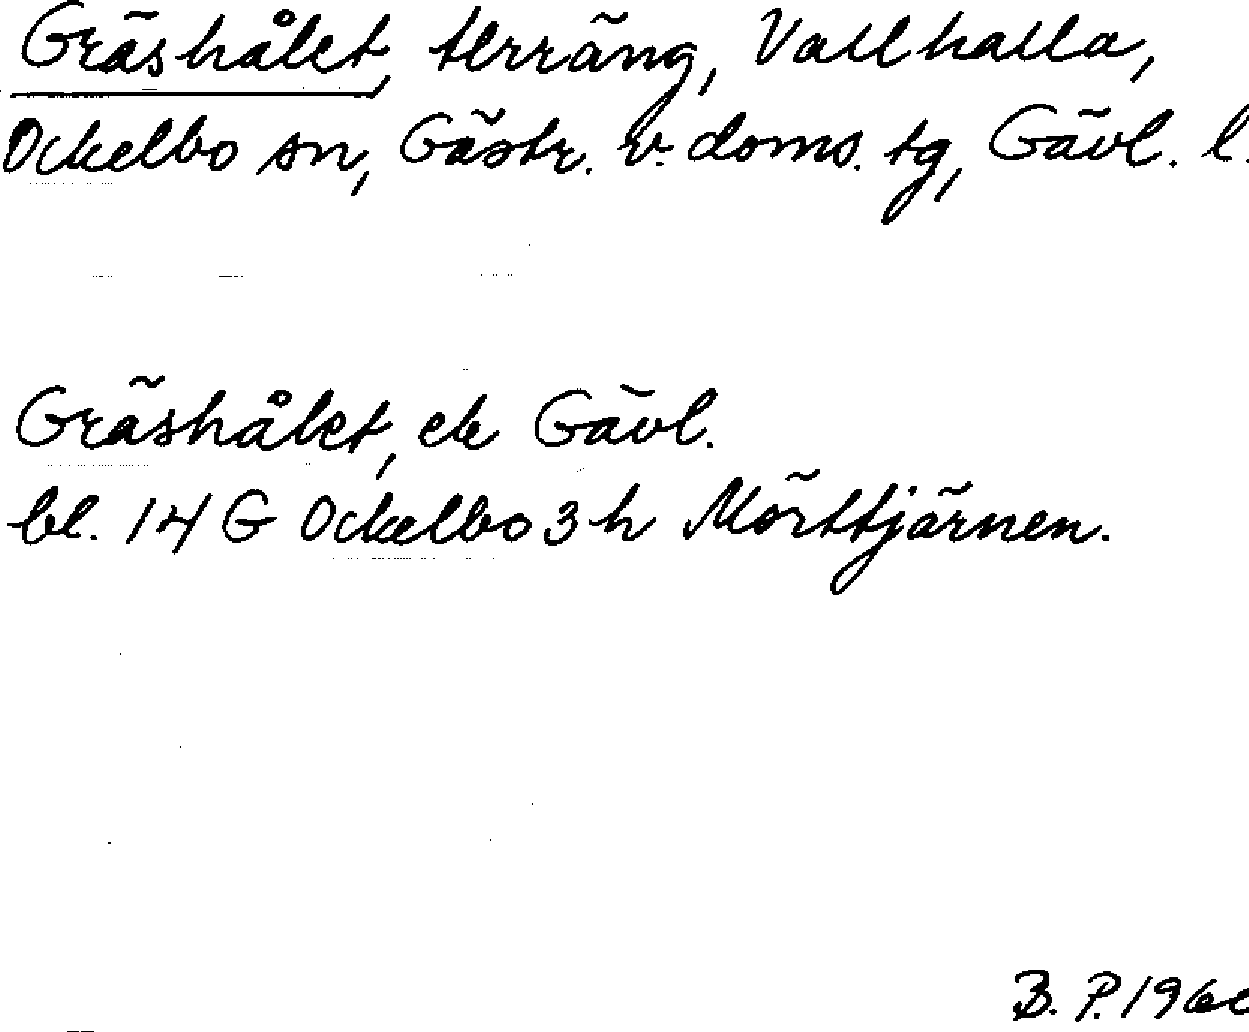 Gräshålet, terräng, Vallhalla,
Ockelbo sn, Gästr. v. doms. tg, Gävl. l.
Gräshålet, ek Gävl.
bl. 14 G Ockelbo 3 h Mörttjärnen.
B. P. 1960